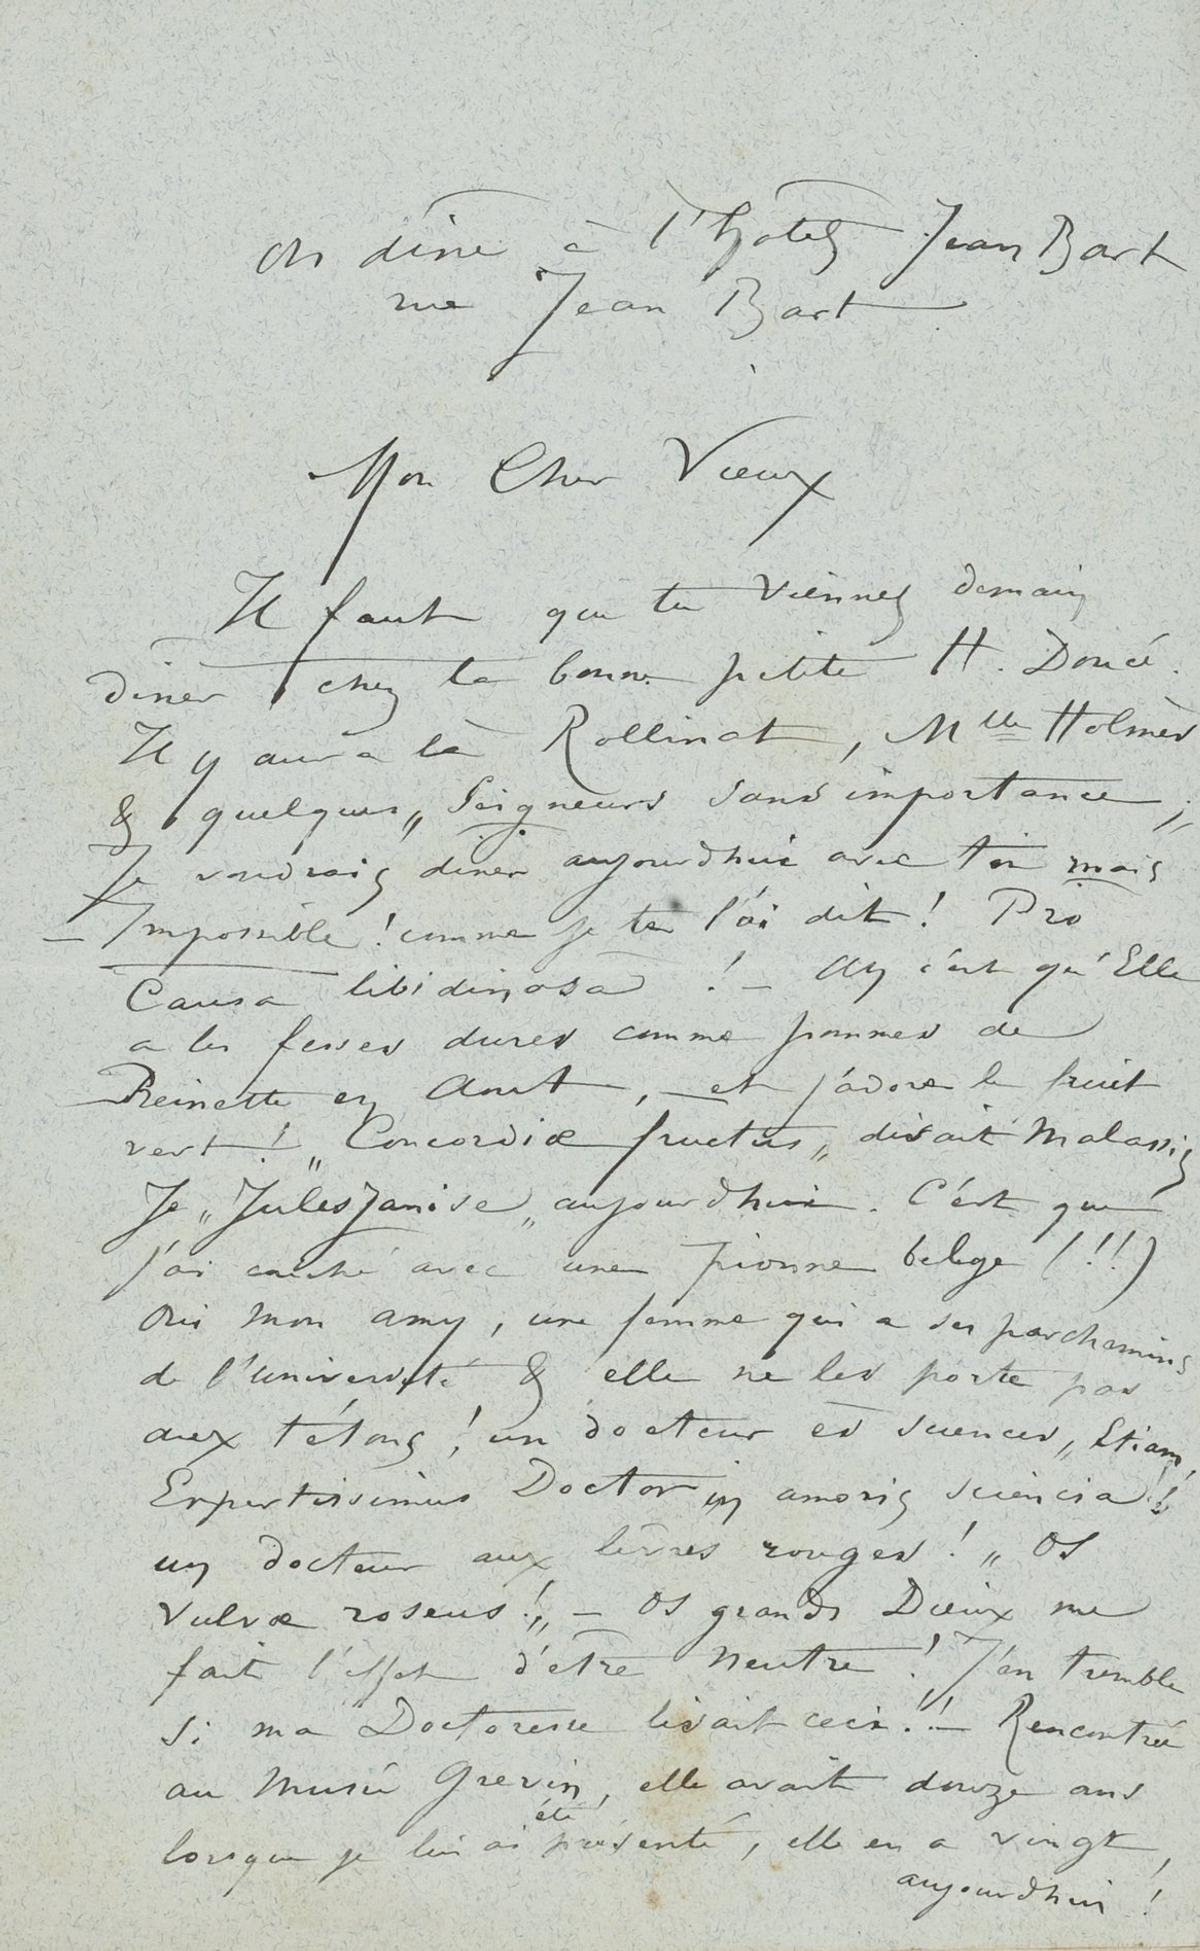 On dine à l'hotel Jean Bart
rue Jean Bart
Mon Cher Vieux
Il faut que tu viennes demain
diner chez la bonne petite H. Doucé.
Il y aura là Rollinat, Mlle Holmès
& quelques „Seigneurs sans importance„;
Je voudrais diner aujourdhui avec toi mais
– Impossible! comme je te l'ai dit! Pro
Causa libidinosa! – Ay c'est qu'Elle
a les fesses dures comme pommes de
Reinette en Aout, – et j'adore le fruit
vert! „Concordiæ fructus„ disait Malassis
Je „JulesJanise„ aujourdhui. C'est que
j'ai couché avec une pionne belge (!!!)
Oui mon amy, une femme qui a ses parchemins
de l'université & elle ne les porte pas
aux tétons! un docteur ès sciences, „Etiam,
Expertissimus Doctor in amoris sciencia!!
un docteur aux lèvres rouges! „Os
Vulvæ roseus!„ – Os grands Dieux me
fait l'effet d'etre neutre! J'en tremble
si ma Doctoresse lisait ceci!! – Rencontrée
au Musée Grevin, elle avait douze ans
lorsque je lui ai été présenté, elle en a vingt,
aujourdhui!